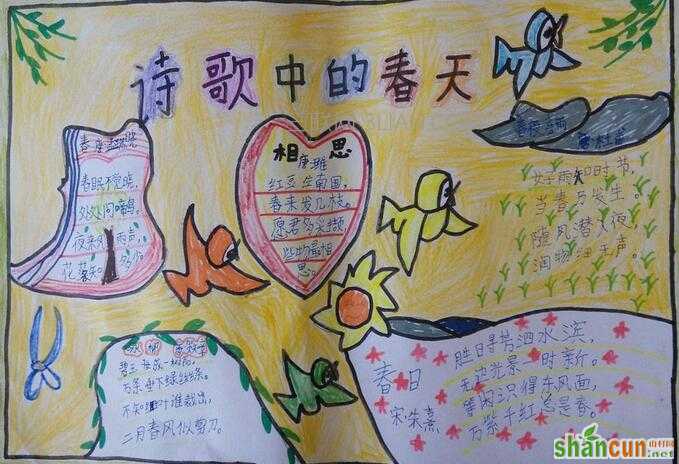 诗歌中的春天
春眠不觉晓,
处处问啼鸟。
夜来风雨声,
花落知多少
相思
唐 王维
红豆生南国,
春来发几枝。
愿君多采撷
此物最相
思。
唐 杜甫
好雨知时节,
当春乃发生。
随风潜入夜,
润物细无声。
咏柳
碧玉妆成一树高,
万条垂下绿丝绦。
不知细叶谁裁出,
二月春风似剪刀。
春日
宋 朱熹
胜日寻芳泗水滨,
无边光景一时新。
等闲识得东风面,
万紫千红总是春。
shancun
山村网
.net